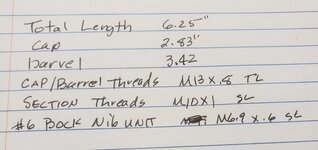 Total Length 6.25"
Cap 2.83"
barrel 3.42
CAP/Barrel Threads M13 x .8 TL
SECTION Threads M10X1 SL
#6 BOCK Nib UNIT M6.9 x .6 SL